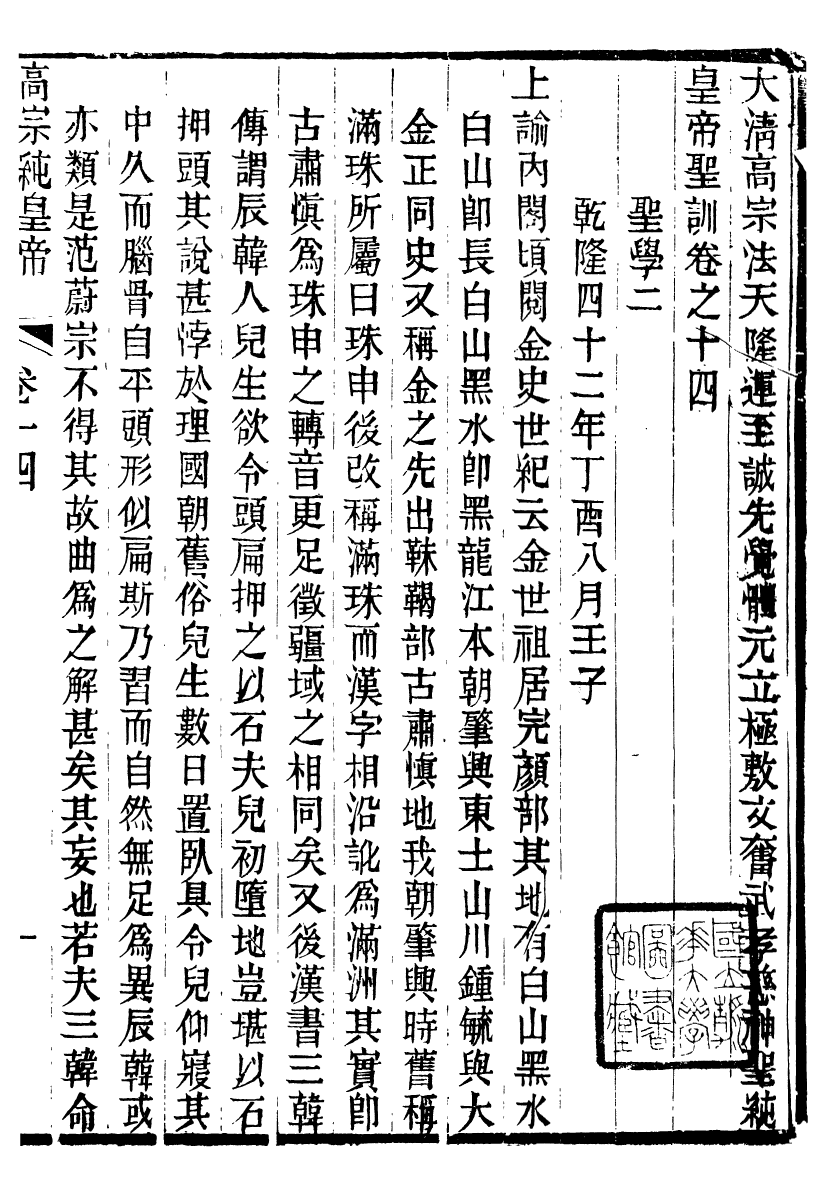 大淸高宗法天隆運至誠先覺體元立極敷文奮武孝慈神聖純
皇帝聖訓卷之十四
聖學二
乾隆四十二年丁酉八月壬子
上諭內閣頃閱金史世紀云金世祖居完顏部其地有白山黑水
白山卽長白山黑水卽黑龍江本朝肇興東土山川鍾毓與大
金正同史又稱金之先出靺鞨部古肅愼地我朝肇興時舊稱
滿珠所屬曰珠申後改稱滿珠而漢字相沿訛爲滿洲其實卽
古肅愼爲珠申之轉音更足徵疆域之相同矣又後漢書三韓
傳謂辰韓人兒生欲令頭扁押之以石夫兒初墮地豈堪以石
押頭其說甚悖於理國朝舊俗兒生數日置臥具令兒仰寢其
中久而腦骨自平頭形似扁斯乃習而自然無足爲異辰韓或
亦類是范蔚宗不得其故曲爲之解甚矣其妄也若夫三韓命
高宗純皇帝
卷十四
一
國立淸華大學圖書館藏